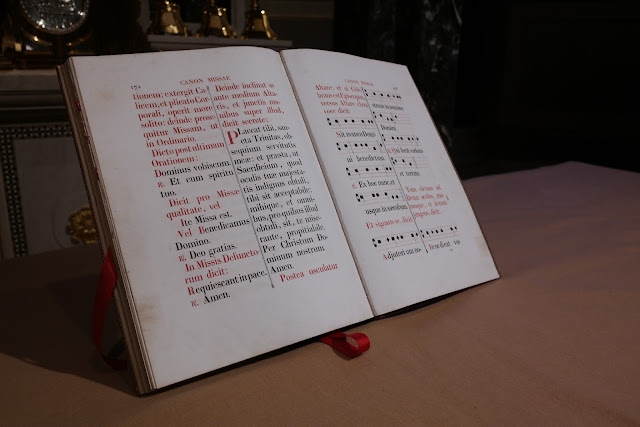 172
CANON MISSAE
tionem: extergit Ca-
licem, et plicato Cor-
porali, operit more
solito: deinde prose-
quitur Missam, ut
in Ordinario.
Dicto post ultimam
Orationem:
Dominus vobiscum.
℟. Et cum spiritu
tuo.
Dicit pro Missae
qualitate, vel
Ite Missa est.
Vel Benedicamus
Domino.
℟. Deo gratias.
In Missis Defuncto-
rum dicit:
Requiescant in pace.
℟. Amen.
Deinde inclinat se
ante medium Alta-
ris, et junctis ma-
nibus super illud,
dicit secrete:
Placeat tibi, san-
cta Trinitas, ob-
sequium servitutis
meae: et praesta, ut
Sacrificium, quod
oculis tuae majesta-
tis indignus obtuli,
tibi sit acceptabile:
mihique, et omni-
bus, pro quibus illud
obtuli, sit, te mise-
rante, propitiabile.
Per Christum Do-
minum nostrum.
Amen.
Postea osculatur
CANON MISSAE
Altare, et si
brans est Episcopus,
versus Altare
voce dicit
Sit nomen Domi
ni benedictum
℟. Ex hoc nunc, et
usque in saeculum.
Et signans se, dicit:
Adjutori um no-
in nomine
Domini.
℟. Qui fecit coelum
et terram.
Tum
benedicat vos